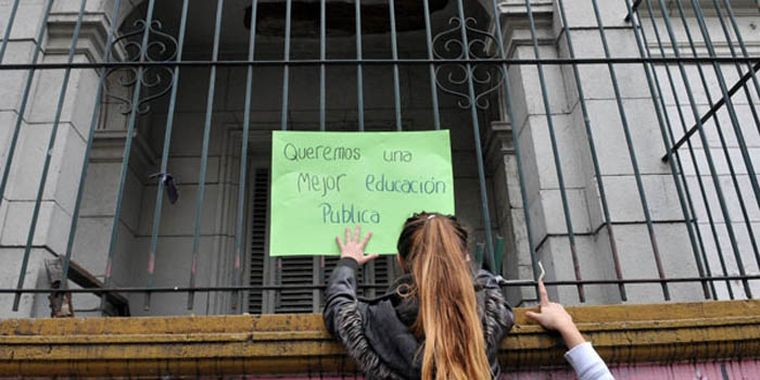 Queremos una
Mejor educación
Publica